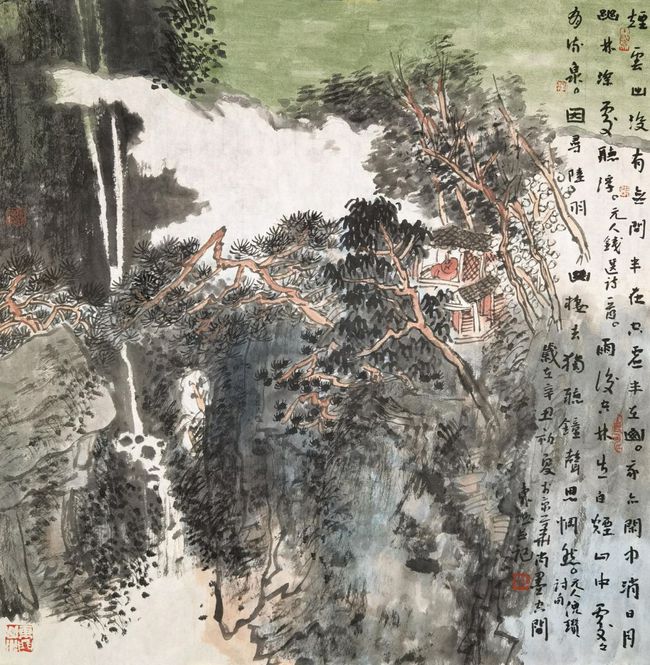 煙雲出没有無間半在空虛半在山。我亦閑中消日月
幽林深處聽潺。元人錢選詩一首。雨後空林生白煙山中處處
有流泉。因尋陸羽幽棲去獨聽鐘聲思惘然。元人倪瓚詩句
歲在辛丑初夏於京華尚墨書閣
記